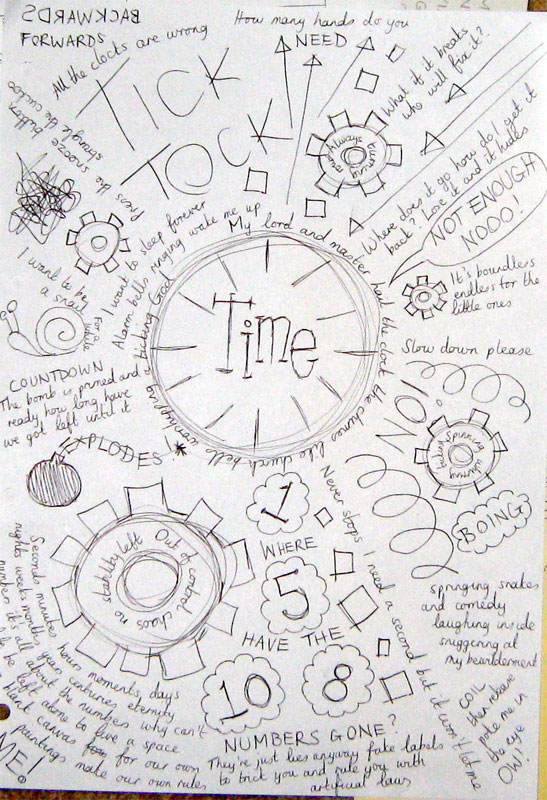 BACKWARDS
FORWARDS
All the clocks are wrong
How many hands do you
NEED
TICK
TOCK
What if it breaks
who will fix it?
Always turning
Where does it go how do I get it
back? Lose it and it hides
NOT ENOUGH
NOOO!
Press the snooze button
strangle the cuckoo
I want to sleep forever
Alarm bells ringing wake me up
My lord and master hail the clock the chimes like church bells worshipping a ticking God
Time
I want to be
a snail
for a while
It's boundless
endless for the
little ones
Slow down please
NO!
Spinning
BOING
COUNTDOWN
The bomb is primed and
ready how long have
we got left until it
EXPLODES!
Out of control chaos no
stability left
1
WHERE
5
HAVE THE
10
8
NUMBERS GONE?
They're just lies anyway fake labels
to trick you and rule you with
artificial laws
Never stops I need a second but it won't let me
springing snakes
and comedy
laughing inside
sniggering at
my bewilderment
COIL
then release
poke me in
the eye
OW!
Seconds minutes hours moments, days
nights weeks months years centuries eternity
numbers it's all about the numbers why can't
we be left alone to live a space
blank canvas for our own
paintings make our own rules
ME!